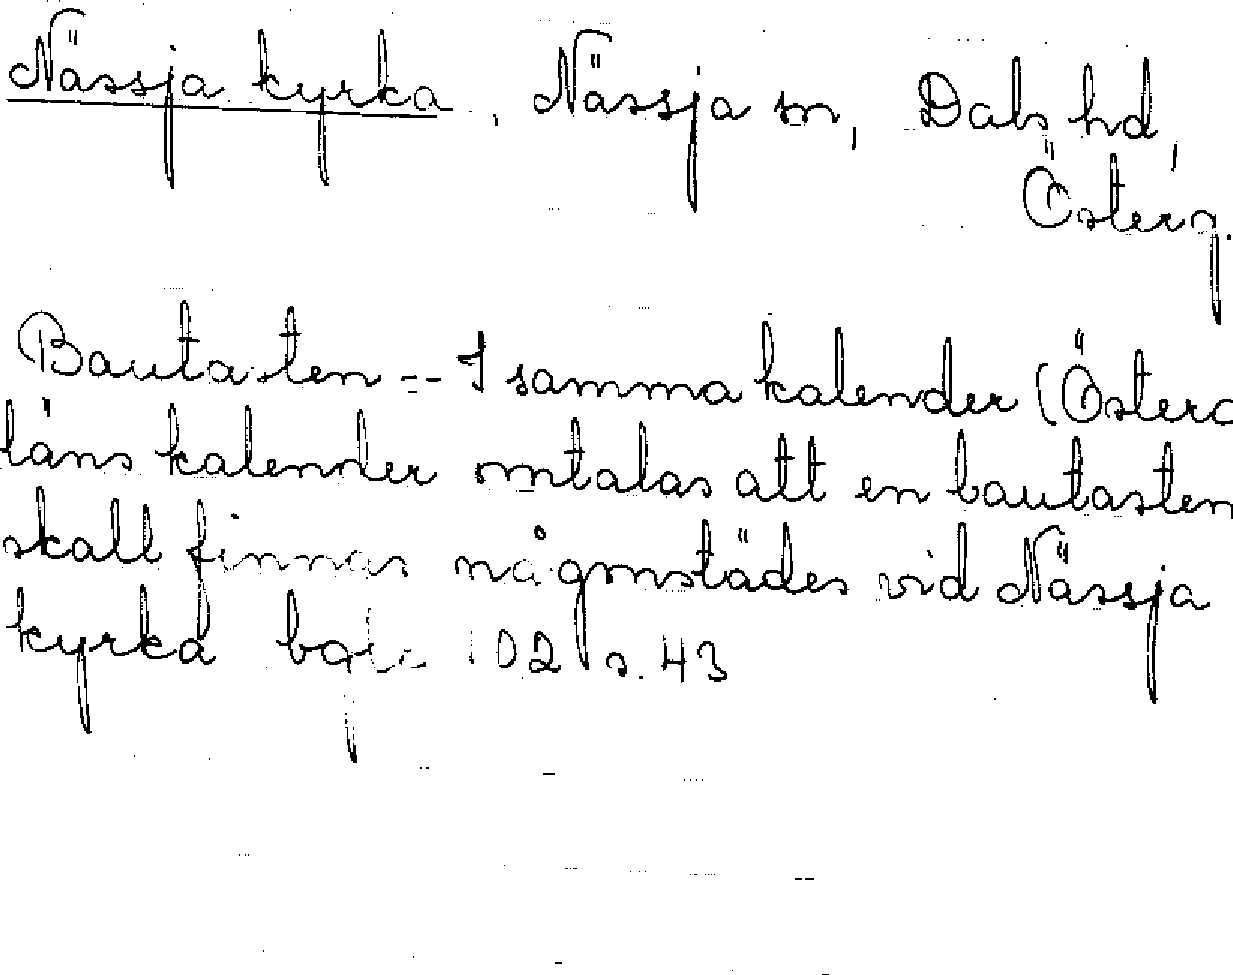 Nässja kyrka, Nässja sn, Dals hd,
Österg.
Bautasten -- I samma kalender (Österg
läns kalender omtalas att en bautasten
skall finnas någonstädes vid Nässja
kyrka 102 s. 43